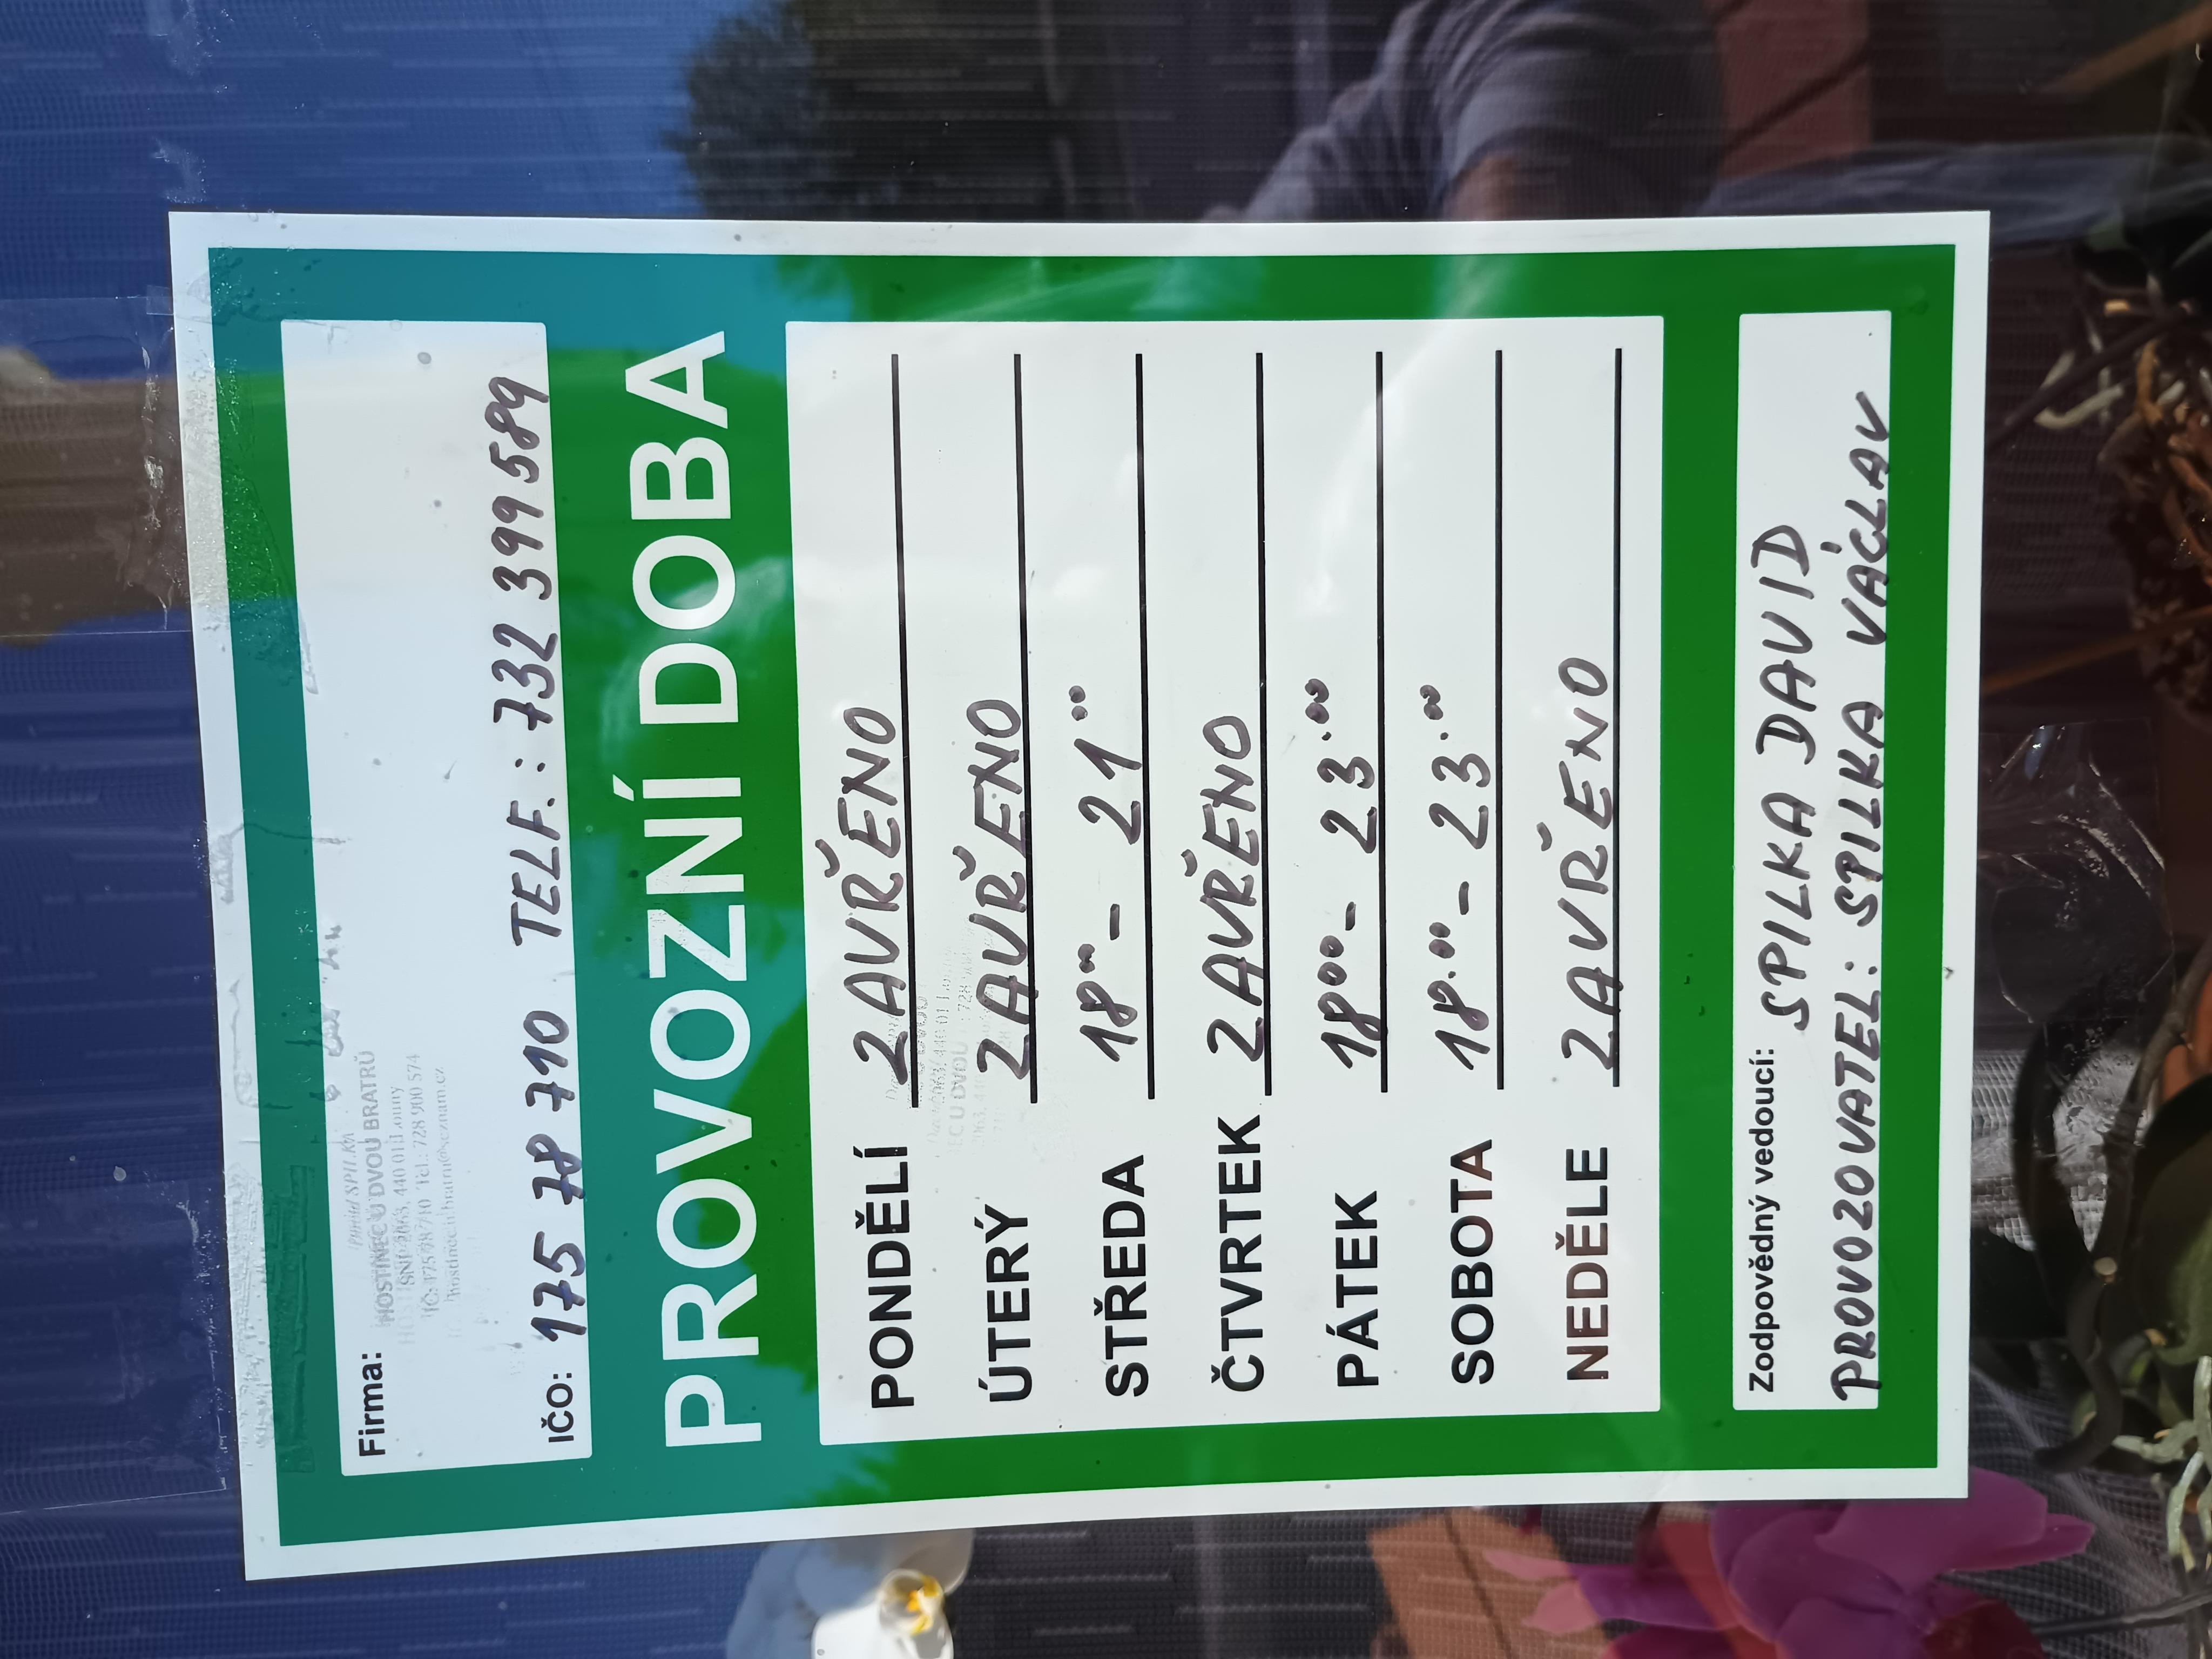 Firma:
David SPILKA
HOSTINEC U DVOU BRATRŮ
SNP 2063, 440 01 Louny
IČ: 17578710 Tel.: 728 900 574
IČO: 175 78 710 TELF.: 732 399 589
PROVOZNÍ DOBA
PONDĚLÍ ZAVŘENO
ÚTERÝ ZAVŘENO
STŘEDA 18⁰⁰ - 21⁰⁰
ČTVRTEK ZAVŘENO
PÁTEK 18⁰⁰ - 23.⁰⁰
SOBOTA 18.⁰⁰ - 23.⁰⁰
NEDĚLE ZAVŘENO
Zodpovědný vedoucí: SPILKA DAVID
PROVOZOVATEL: SPILKA VÁCLAV